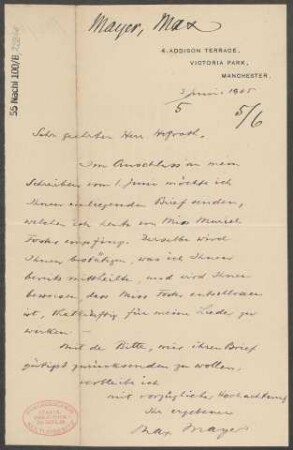 Mayer, Max
4, ADDISON TERRACE,
VICTORIA PARK,
MANCHESTER.
55 Nachl 100/B
3 Juni 1905
5 5/6
Sehr geehrter Herr Hofrath.
Im Anschluss an mein
Schreiben vom 1. Juni möchte ich
Ihnen einliegenden Brief senden,
welchen ich heute von Miss Muriel
Foster empfing. Derselbe wird
Ihnen bestätigen, was ich Ihnen
bereits mittheilte, und wird Ihnen
beweisen, dass Miss Foster entschlossen
ist, thatkräftig für meine Lieder zu
werken. —
Mit der Bitte, mir ihren Brief
gütigst zurücksenden zu wollen,
verbleibe ich
mit vorzüglicher Hochachtung
Ihr ergebener
Max Mayer